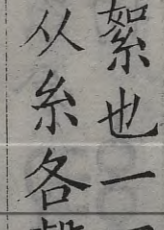 絮也一
从糸各